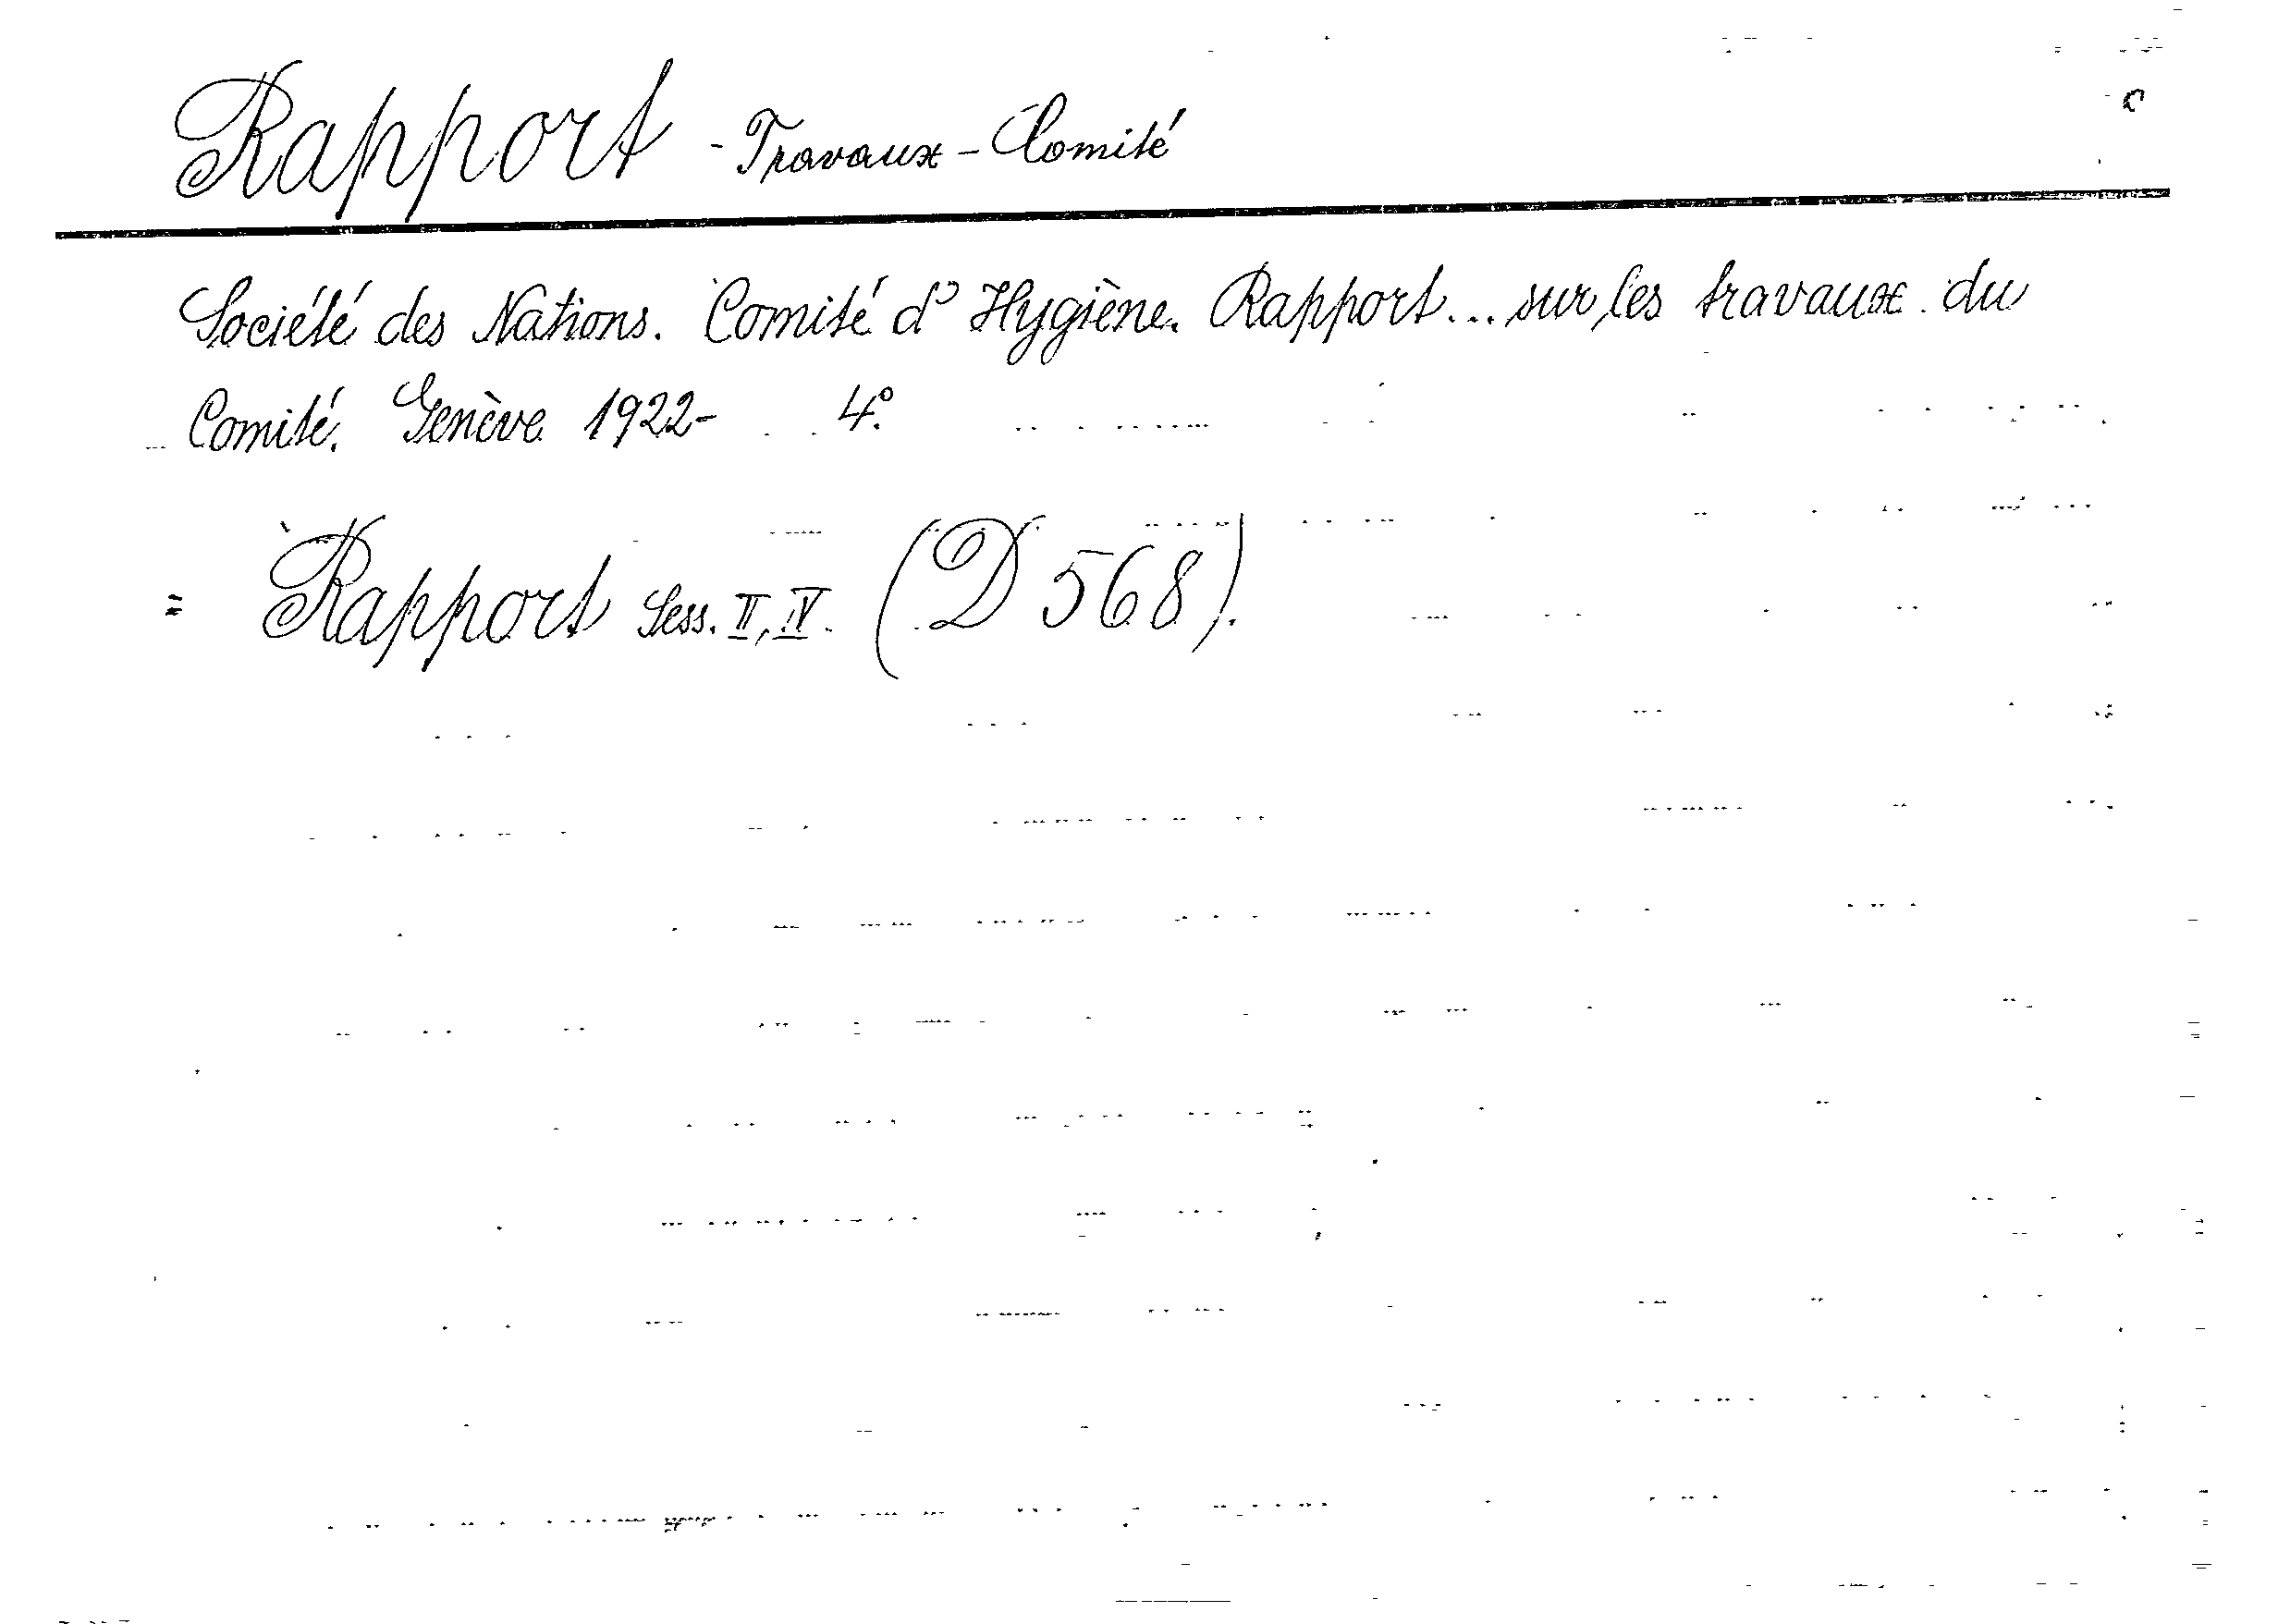 Rapport - Travaux - Comité
Société des Nations. Comité d'Hygiène. Rapport... sur les travaux du
Comité. Genève 1922- 4°.
= Rapport Sess. II, IV. (D 568).